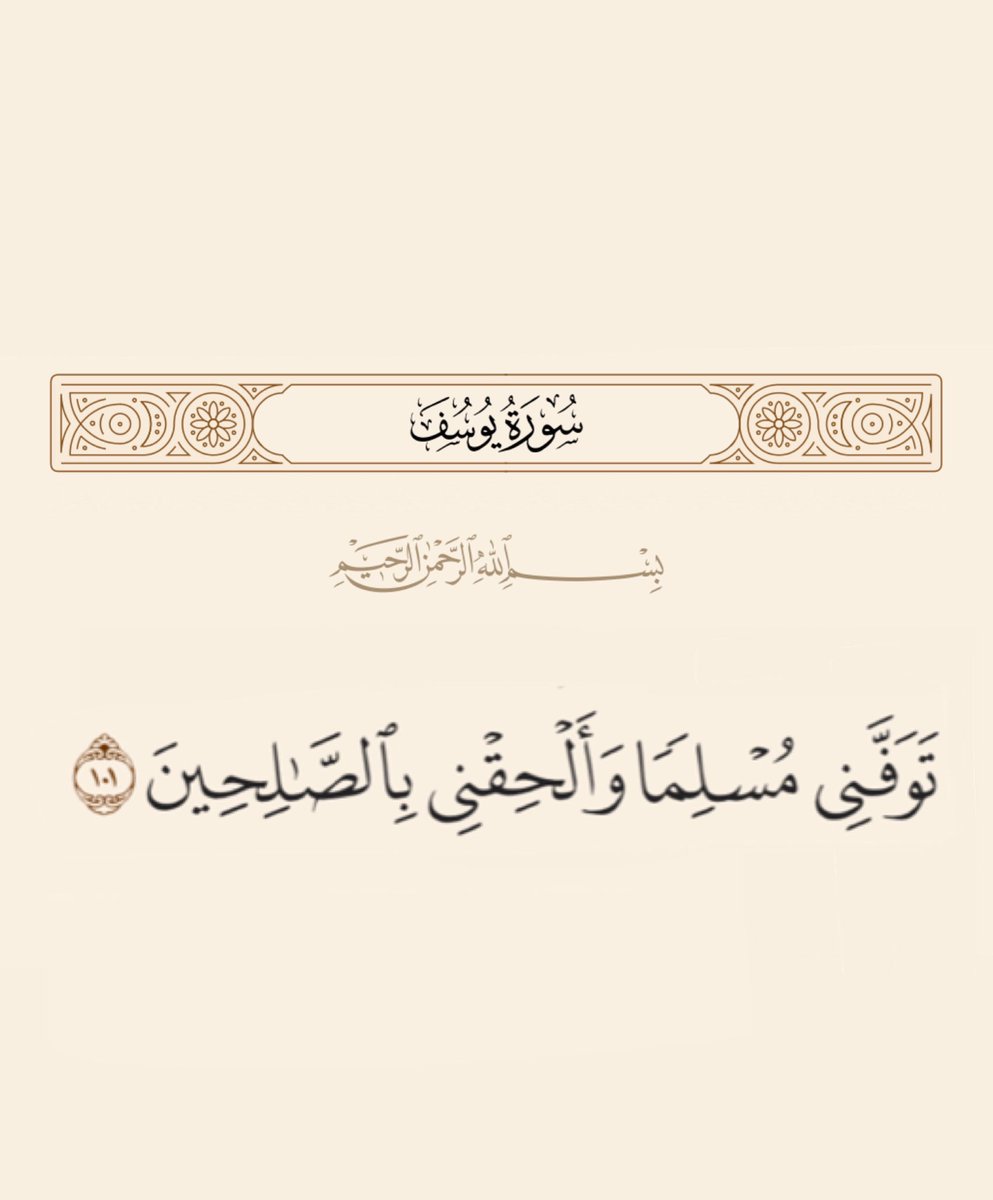 سُورَةُ يُوسُفَ
بِسْمِ ٱللَّهِ ٱلرَّحْمَٰنِ ٱلرَّحِيمِ
تَوَفَّنِى مُسْلِمًا وَأَلْحِقْنِى بِٱلصَّٰلِحِينَ ١٠١